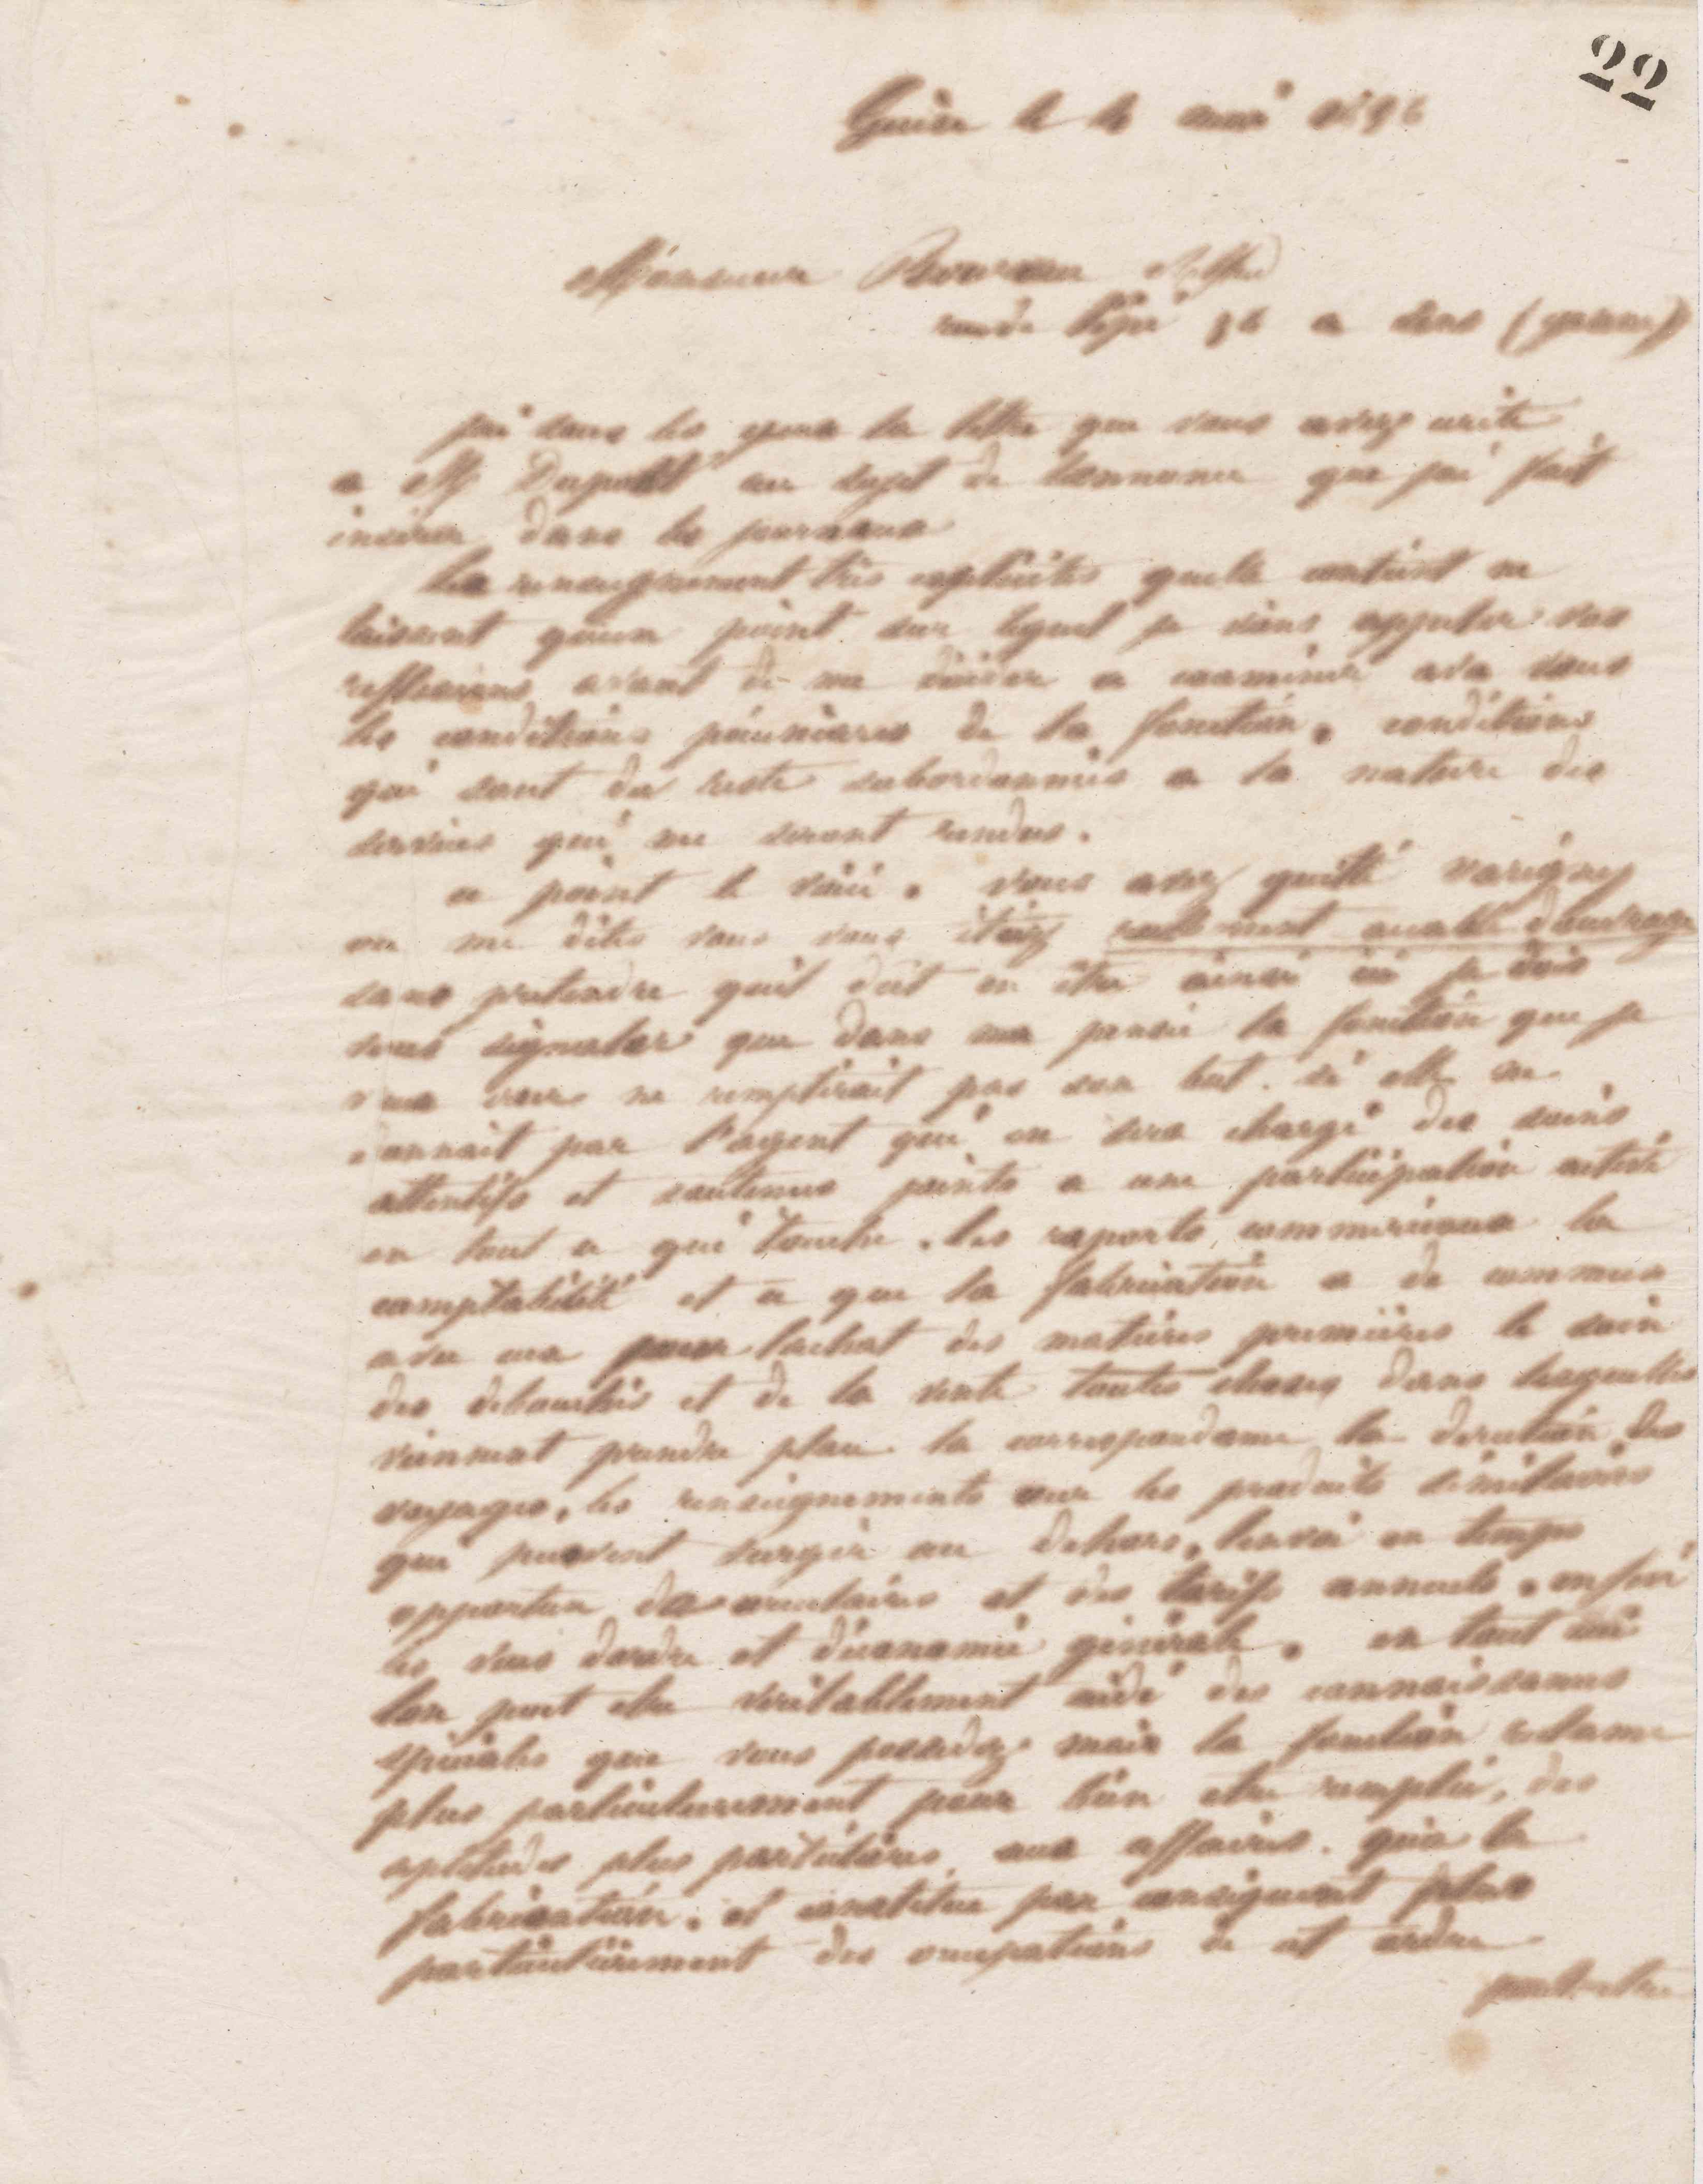 22
Guise le 4 mai
Monsieur
rue de 36 a
j'ai sous les yeux la lettre que vous avez écrite
a M au sujet de lannonce que jai fait
insérer dans les journaux
Les renseignement très explicites quelle contient ne
laissent quun point sur lequel je dois appeler vos
reflexions avant de me décider a examiner avec vous
les conditions pécuniaires de la fonction, conditions
qui sont du reste subordonnées a la nature des
services qui me seront rendus.
ce point le voici. vous avez quitté Marigny
ou me dites vous vous étiez
sans pretendre quil doit en être ainsi ici je dois
vous signaler que dans ma pensée la fonction que je
ne remplirait pas son but si elle ne
donnait par l'agent qui en sera chargé des soins
attentifs et soutenus joints a une participation active
en tout ce qui touche les raports commerciaux la
comptabilité et ce que la fabrication a de commun
avec eux pour lachat des matières premières le soin
des debouchés et de la vente toutes choses dans lesquelles
viennent prendre place la correspondance la direction des
voyages, les renseignements sur les produits similaires
qui peuvent surgir au dehors, lenvoi en temps
opportun des circulaires et des tarifs annuels, enfin
les vues dordre et déconomie générale. en tout cela
lon peut etre véritablement aidé des connaissances
spéciales que vous possedez mais la fonction reclame
plus particulierement pour bien etre remplie, des
aptitudes plus particulières aux affaires qua la
fabrication, et constitue par consequent plus
particulièrement des occupations de cet ordre
peut-etre